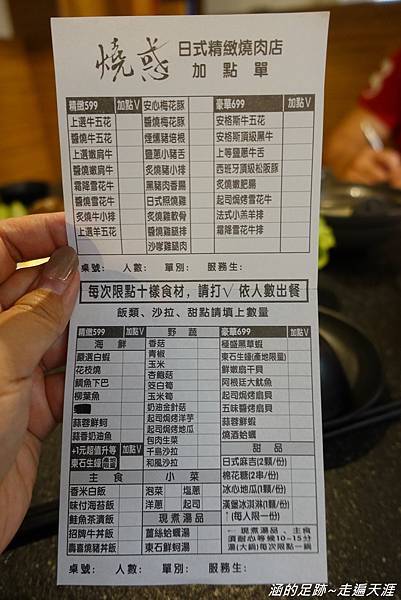 燒惑 日式精緻燒肉店
加點單
精緻599 加點V
上選牛五花
醬燒牛五花
上選嫩肩牛
醬燒嫩肩牛
霜降雪花牛
醬燒雪花牛
炙燒牛小排
上選羊五花
安心梅花豚
醬燒梅花豚
煙燻豬培根
鹽蔥小豬舌
炙燒豬小排
黑豬肉香腸
日式照燒雞
炙燒雞軟骨
醬燒雞腿肉
沙嗲雞腿肉
豪華699 加點V
安格斯牛五花
安格斯頂級黑牛
上等鹽蔥牛舌
西班牙頂級松阪豚
炙燒嫩肥腸
起司焗烤雪花牛
法式小羔羊排
霜降雪花牛排
桌號: 人數: 單別: 服務生:
每次限點十樣食材,請打√ 依人數出餐
飯類、沙拉、甜點請填上數量
精緻599 加點V
海鮮
嚴選白蝦
花枝燒
鯛魚下巴
柳葉魚
蒜蓉鮮蚵
蒜香奶油魚
+1元超值升等 加點V
東石生蠔
野蔬
香菇
青椒
玉米
杏鮑菇
筊白筍
玉米筍
奶油金針菇
起司焗烤洋芋
起司焗烤地瓜
包肉生菜
千島沙拉
和風沙拉
豪華699 加點V
極盛黑草蝦
東石生蠔(產地限量)
鮮嫩扇干貝
阿根廷大魷魚
起司焗烤扇貝
五味醬烤扇貝
蒜蓉鮮蝦
燒酒蛤蠣
甜品
日式麻吉(2顆/份)
棉花糖(2串/份)
冰心地瓜(1顆/份)
漢堡冰淇淋(1顆/份)
↑(每人限一份)
主食
香米白飯
味付海苔飯
鮭魚茶漬飯
招牌牛丼飯
壽喜燒豬丼飯
小菜
泡菜 塩蔥
洋蔥 起司
現煮湯品
薑絲蛤蠣湯
東石鮮蚵湯
←現煮湯品、主食
須耐心等候10~15分
湯(大鍋)每次限點一鍋
桌號: 人數: 單別: 服務生:
涵的足跡~走遍天涯